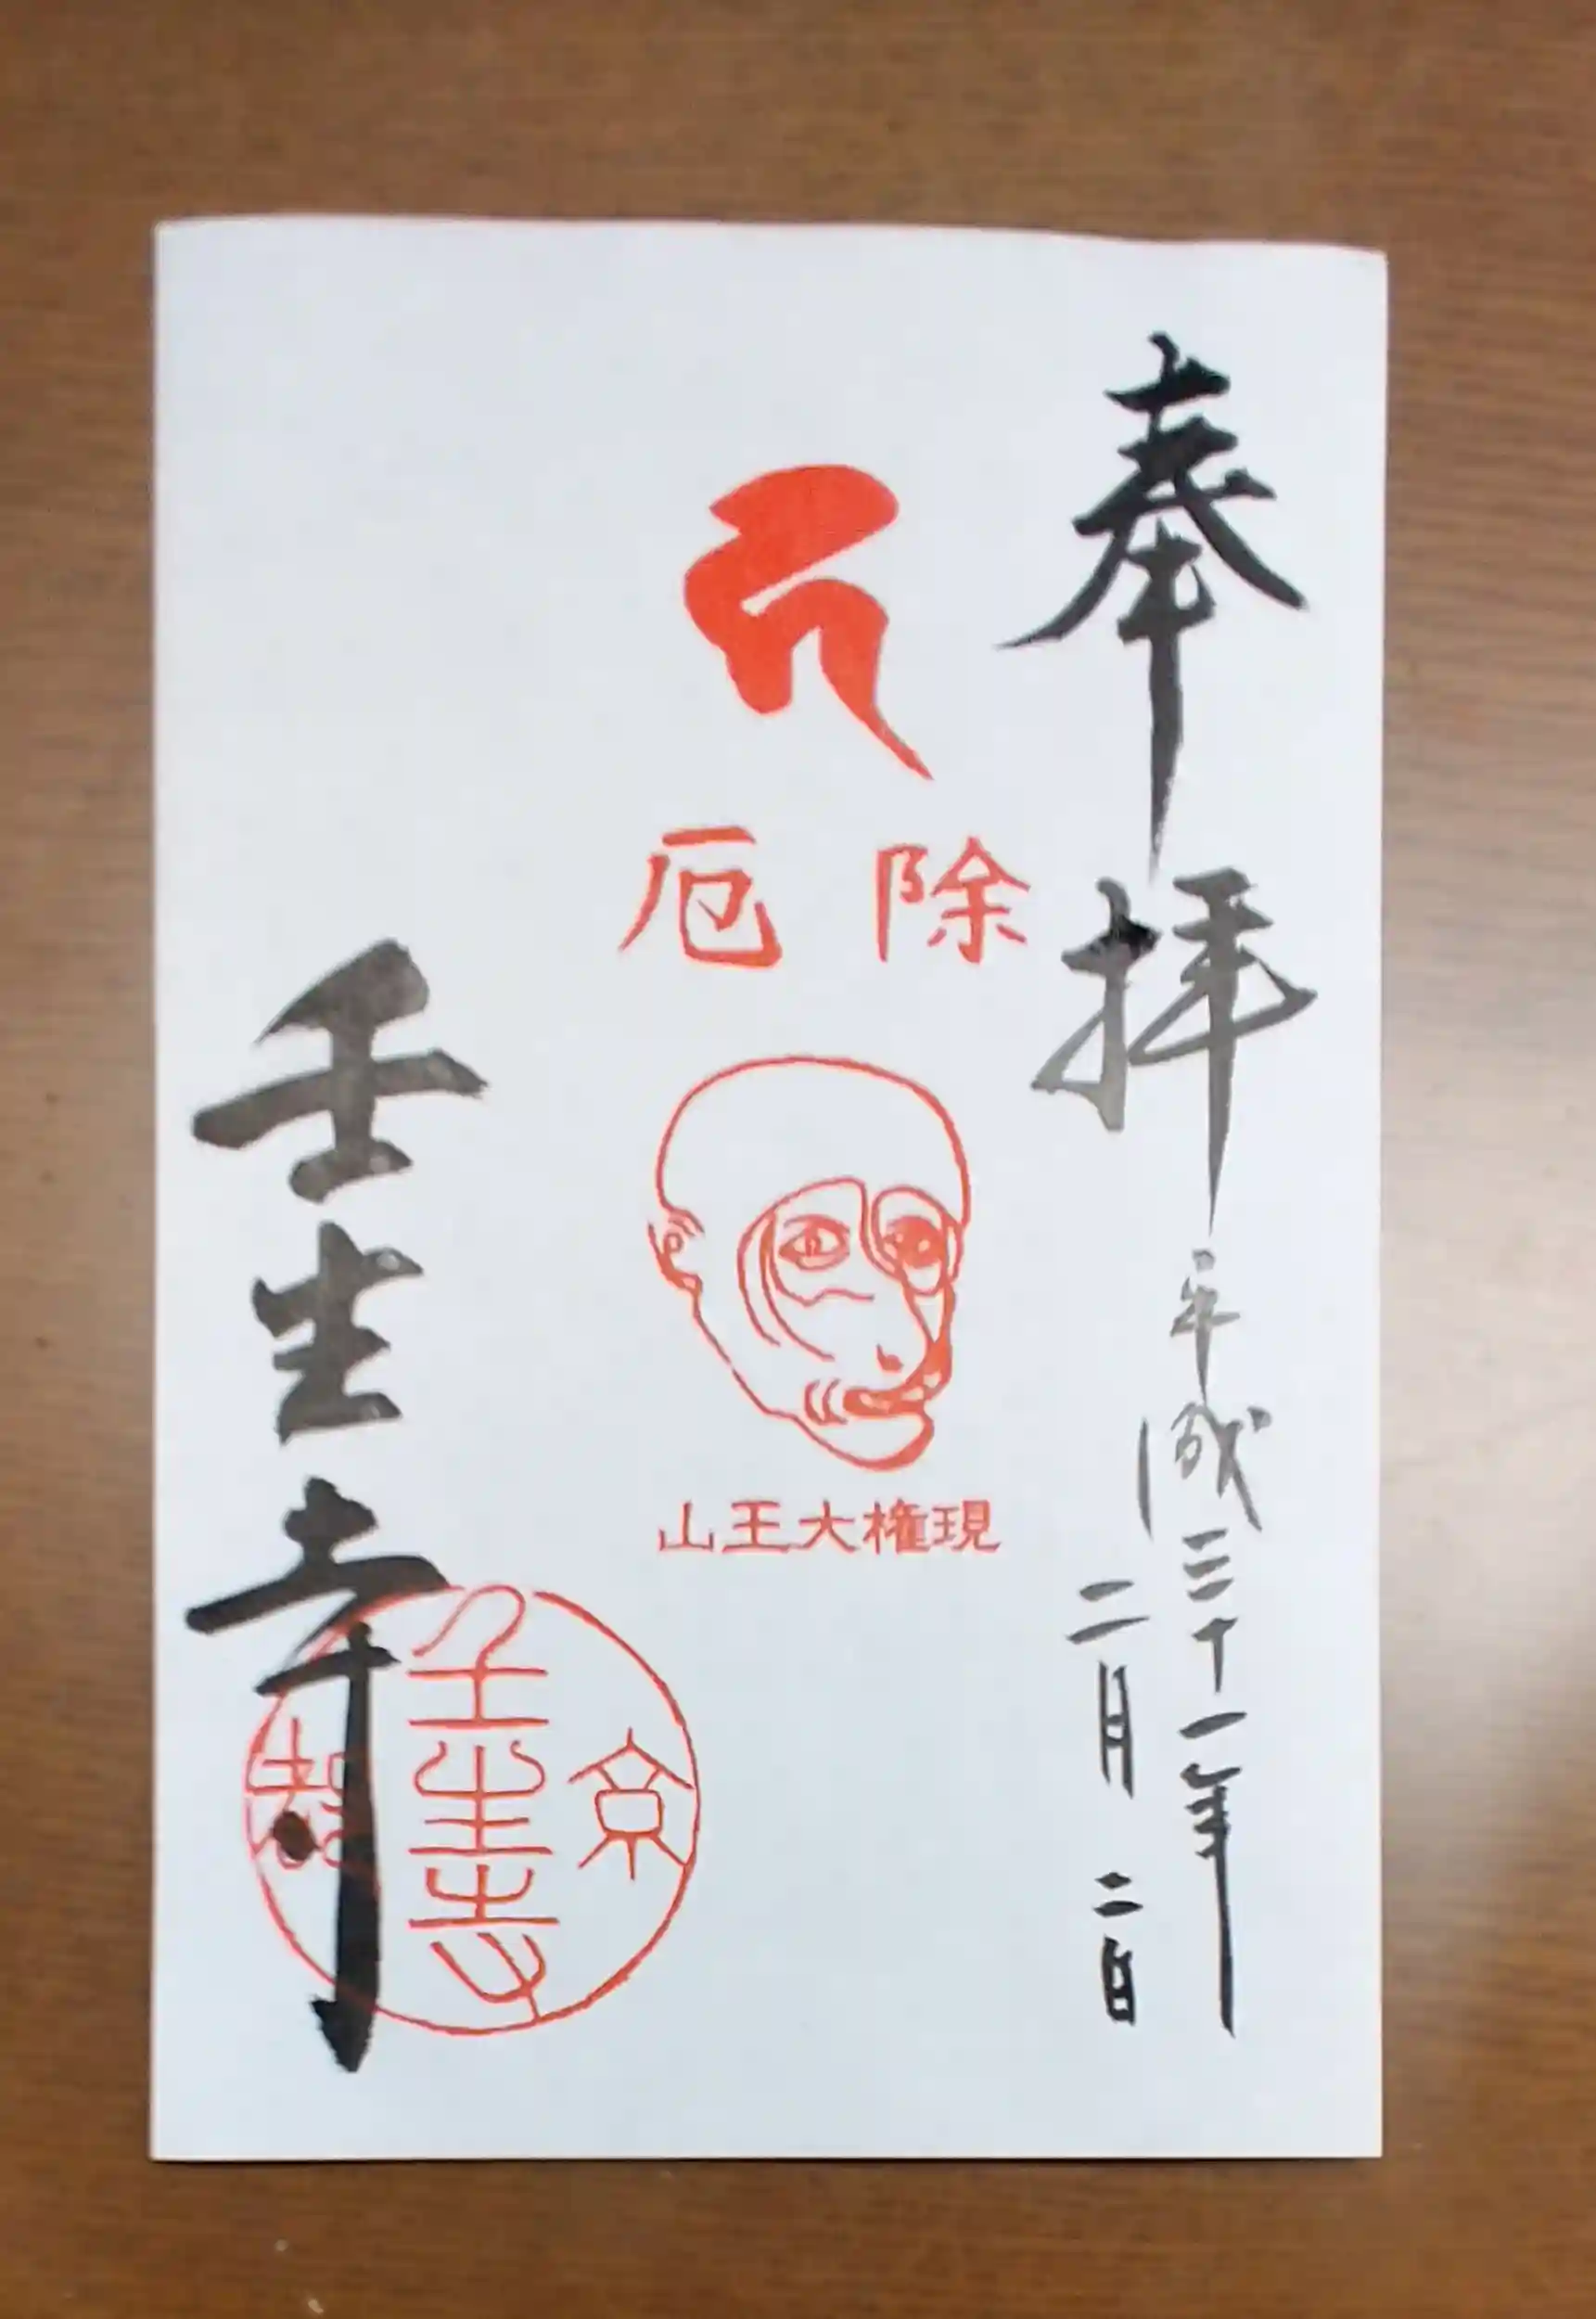 奉拝
平成三十一年
二月二日
厄除
山王大権現
壬生寺
京
壬生寺
都